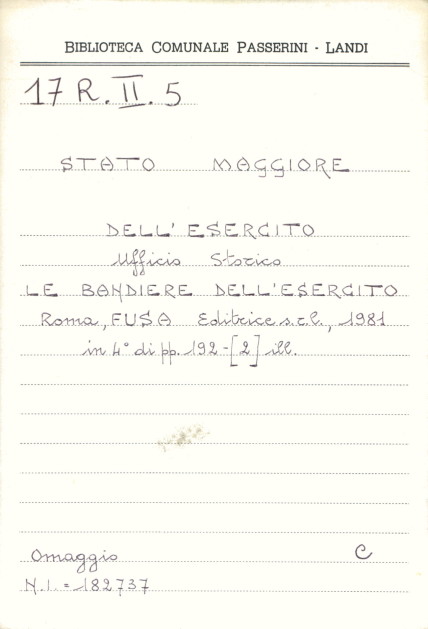 BIBLIOTECA COMUNALE PASSERINI - LANDI
17 R. II. 5
STATO MAGGIORE
DELL'ESERCITO
Ufficio Storico
LE BANDIERE DELL'ESERCITO
Roma, FUSA Editrice s.r.l., 1981
in 4° di pp. 192-[2] ill.
Omaggio C
N.I. = 182737